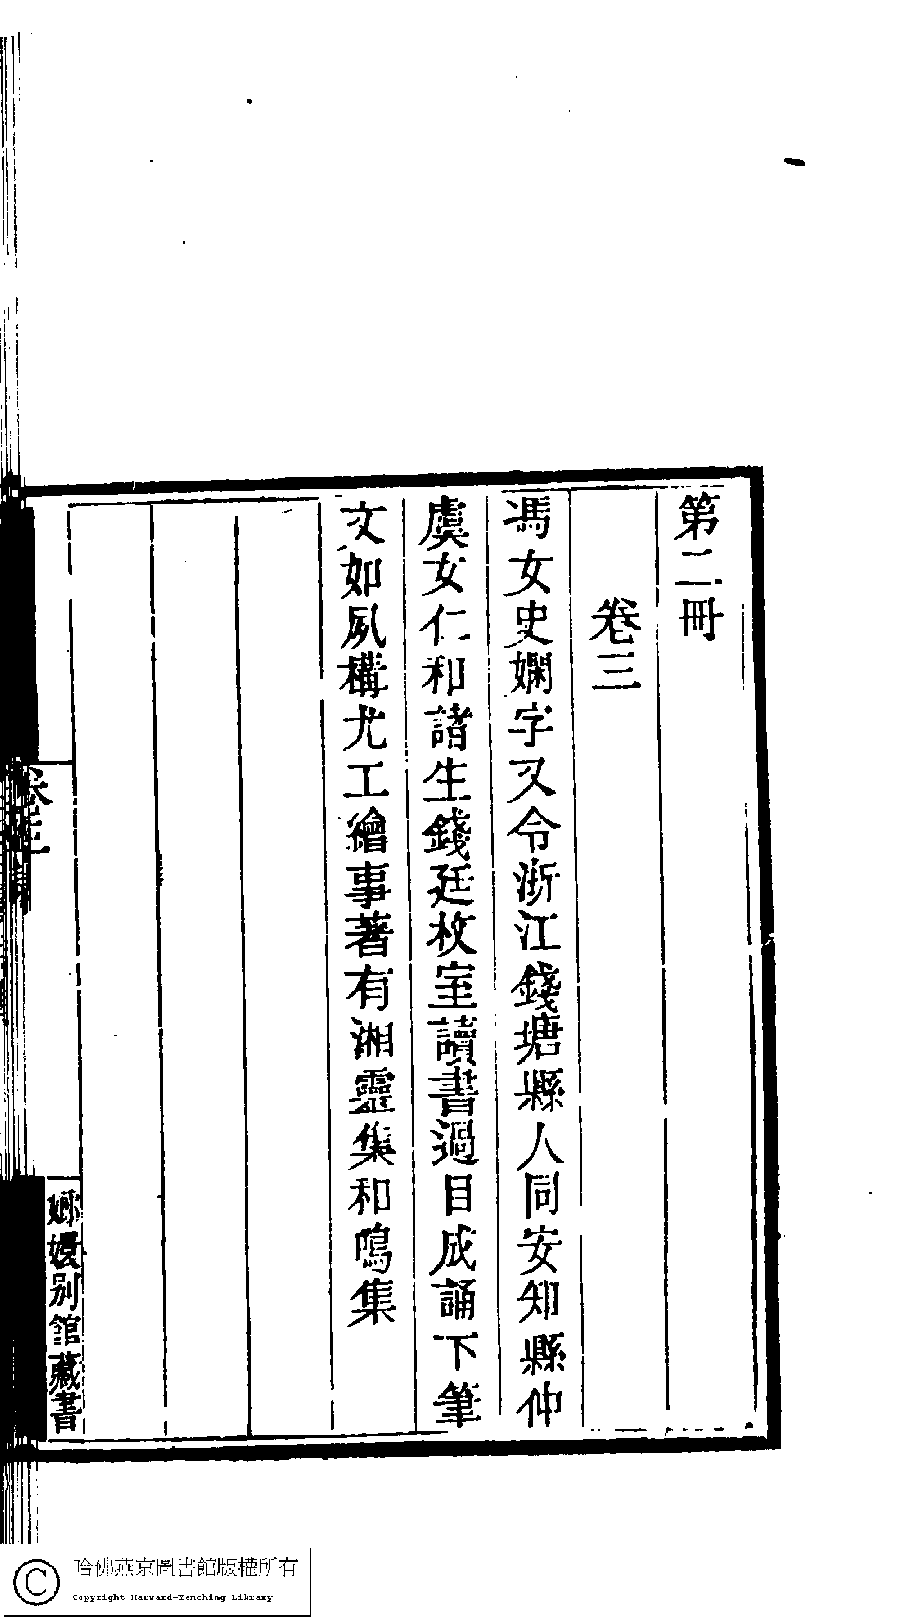 第二冊
卷三
馮女史嫻字又令浙江錢塘縣人同安知縣仲
虞女仁和諸生錢廷枚室讀書過目成誦下筆
文如夙構尤工繪事著有湘靈集和鳴集
卷三
嫏嬛别館藏書
哈佛燕京圖書館版權所有
Copyright Harvard-Yenching Library